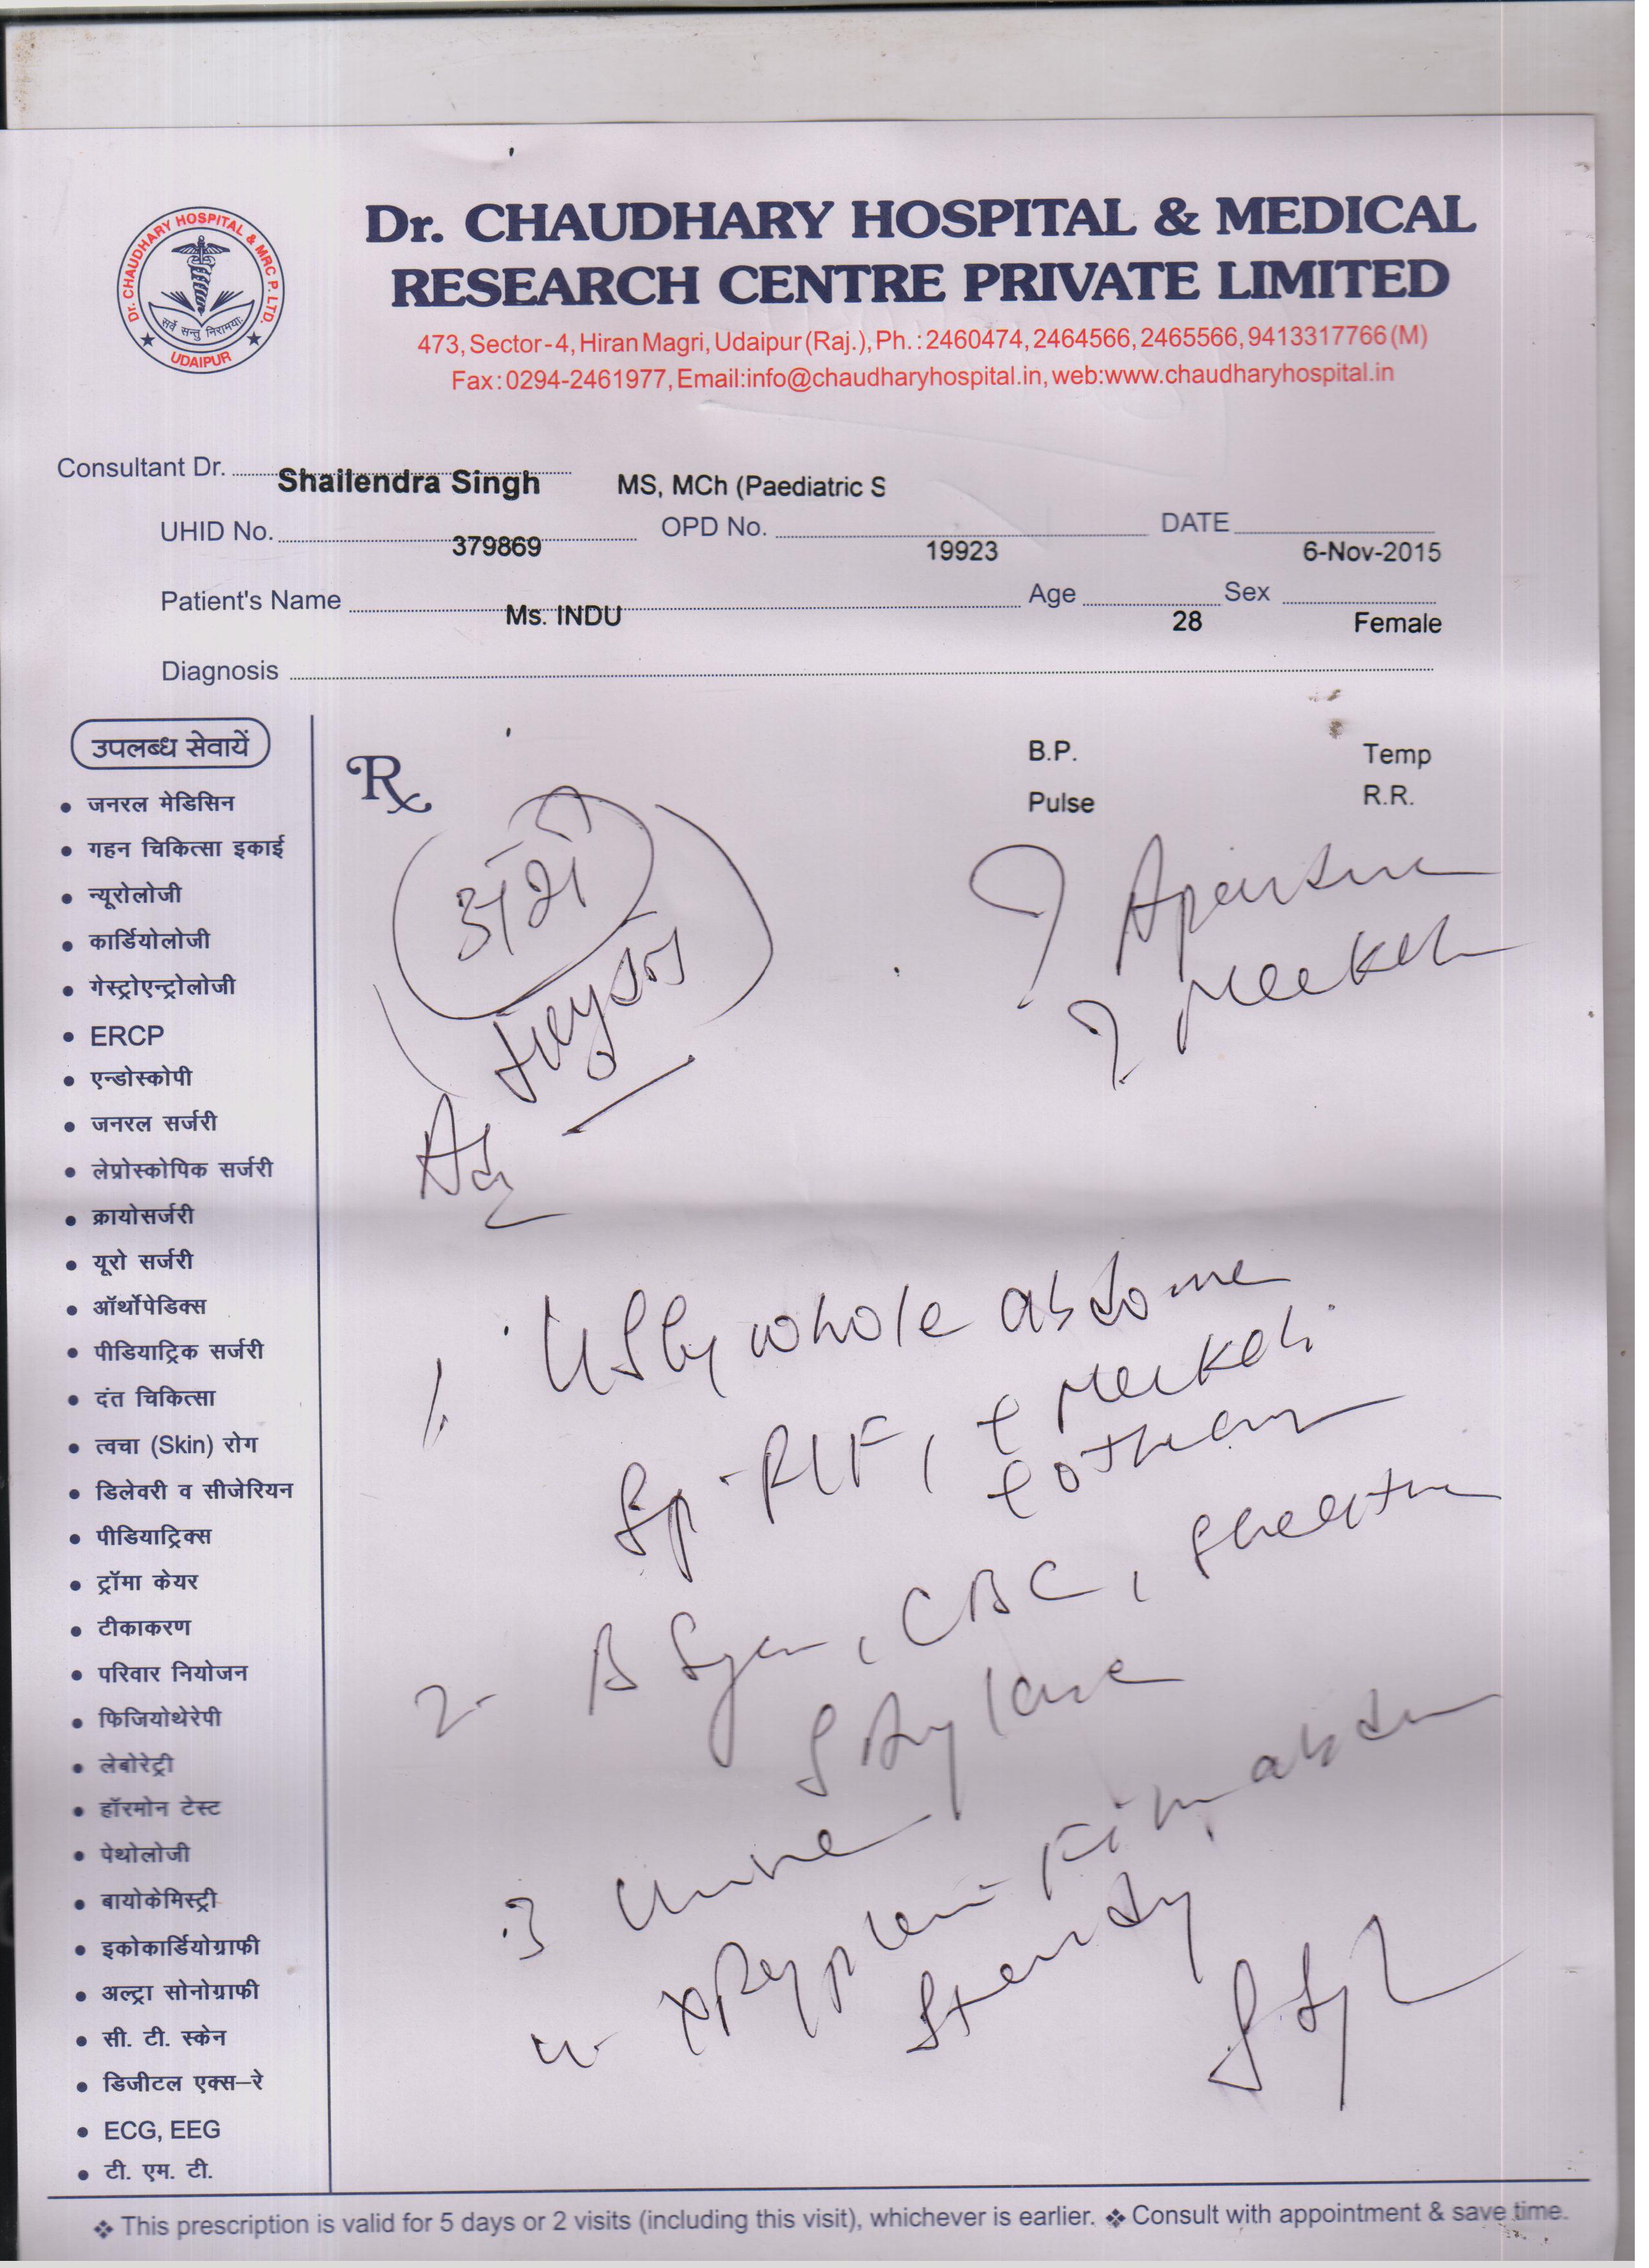 Dr. CHAUDHARY HOSPITAL & MRC P. LTD.
सर्वे सन्तु निरामयाः
UDAIPUR
Dr. CHAUDHARY HOSPITAL & MEDICAL
RESEARCH CENTRE PRIVATE LIMITED
473, Sector-4, Hiran Magri, Udaipur (Raj.), Ph. : 2460474, 2464566, 2465566, 9413317766 (M)
Fax : 0294-2461977, Email:info@chaudharyhospital.in, web:www.chaudharyhospital.in
Consultant Dr. Shailendra Singh MS, MCh (Paediatric S
UHID No. 379869 OPD No. 19923 DATE 6-Nov-2015
Patient's Name Ms. INDU Age 28 Sex Female
Diagnosis
उपलब्ध सेवायें
• जनरल मेडिसिन
• गहन चिकित्सा इकाई
• न्यूरोलोजी
• कार्डियोलोजी
• गेस्ट्रोएन्ट्रोलोजी
• ERCP
• एन्डोस्कोपी
• जनरल सर्जरी
• लेप्रोस्कोपिक सर्जरी
• क्रायोसर्जरी
• यूरो सर्जरी
• ऑर्थोपेडिक्स
• पीडियाट्रिक सर्जरी
• दंत चिकित्सा
• त्वचा (Skin) रोग
• डिलेवरी व सीजेरियन
• पीडियाट्रिक्स
• ट्रॉमा केयर
• टीकाकरण
• परिवार नियोजन
• फिजियोथेरेपी
• लेबोरेट्री
• हॉरमोन टेस्ट
• पेथोलोजी
• बायोकेमिस्ट्री
• इकोकार्डियोग्राफी
• अल्ट्रा सोनोग्राफी
• सी. टी. स्केन
• डिजीटल एक्स–रे
• ECG, EEG
• टी. एम. टी.
Rx
B.P. Temp
Pulse R.R.
?
? Meckel
Adv
1. USG whole abdome
RIF, Meckel
2- CBC,
3 Urine
4- XRay
Standing
❖ This prescription is valid for 5 days or 2 visits (including this visit), whichever is earlier. ❖ Consult with appointment & save time.